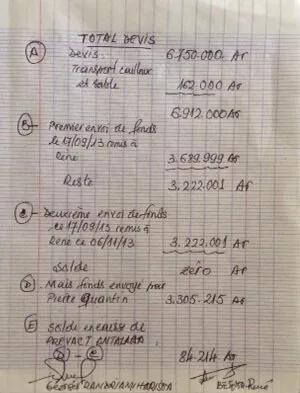 TOTAL DEVIS
A Devis: 6.750.000, Ar
Transport cailloux
et sable 162.000 Ar
6.912.000 Ar
B - Premier envoi de fonds
le 17/09/13 remis à
René 3.689.999 Ar
Reste 3.222.001 Ar
C - Deuxième envoi de fonds
le 17/09/13 remis à
René ce 06/11/13 3.222.001 Ar
Solde zéro Ar
D - Mais fonds envoyé par
Pierre Quantin 3.305.215 Ar
E Solde en caisse de
D - C 84.214 Ar